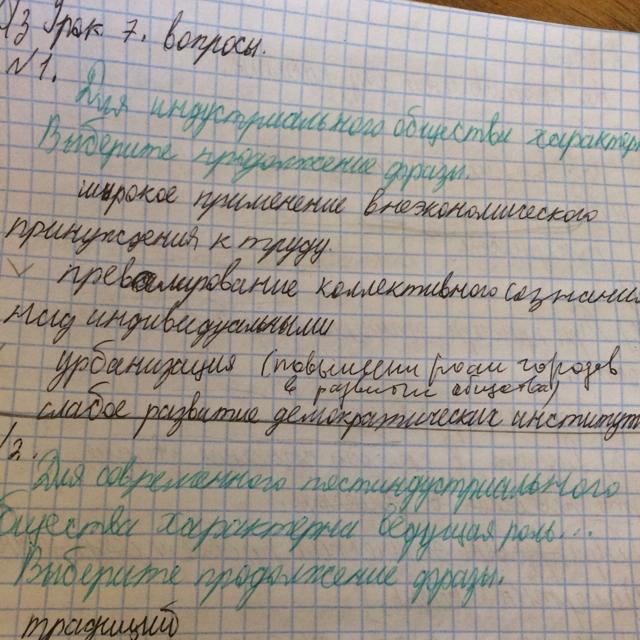 Дз Урок 7. вопросы.
№1.
Для индустриального общества характер
Выберите продолжение фразы.
широкое применение внеэкономического
принуждения к труду
превалирование коллективного сознания
над индивидуальными
урбанизация (повышении роли городов
в развитии общества)
слабое развитие демократических институт
/2.
Для современного постиндустриального
бщества характерна ведущая роль...
Выберите продолжение фразы.
традиций